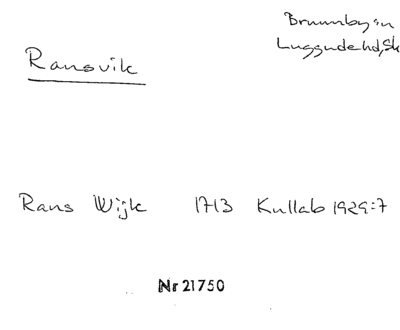 Brunnby sn
Luggude hd, Sk
Ransvik
Rans Wijk 1713 Kullab 1929:7
Nr 21750